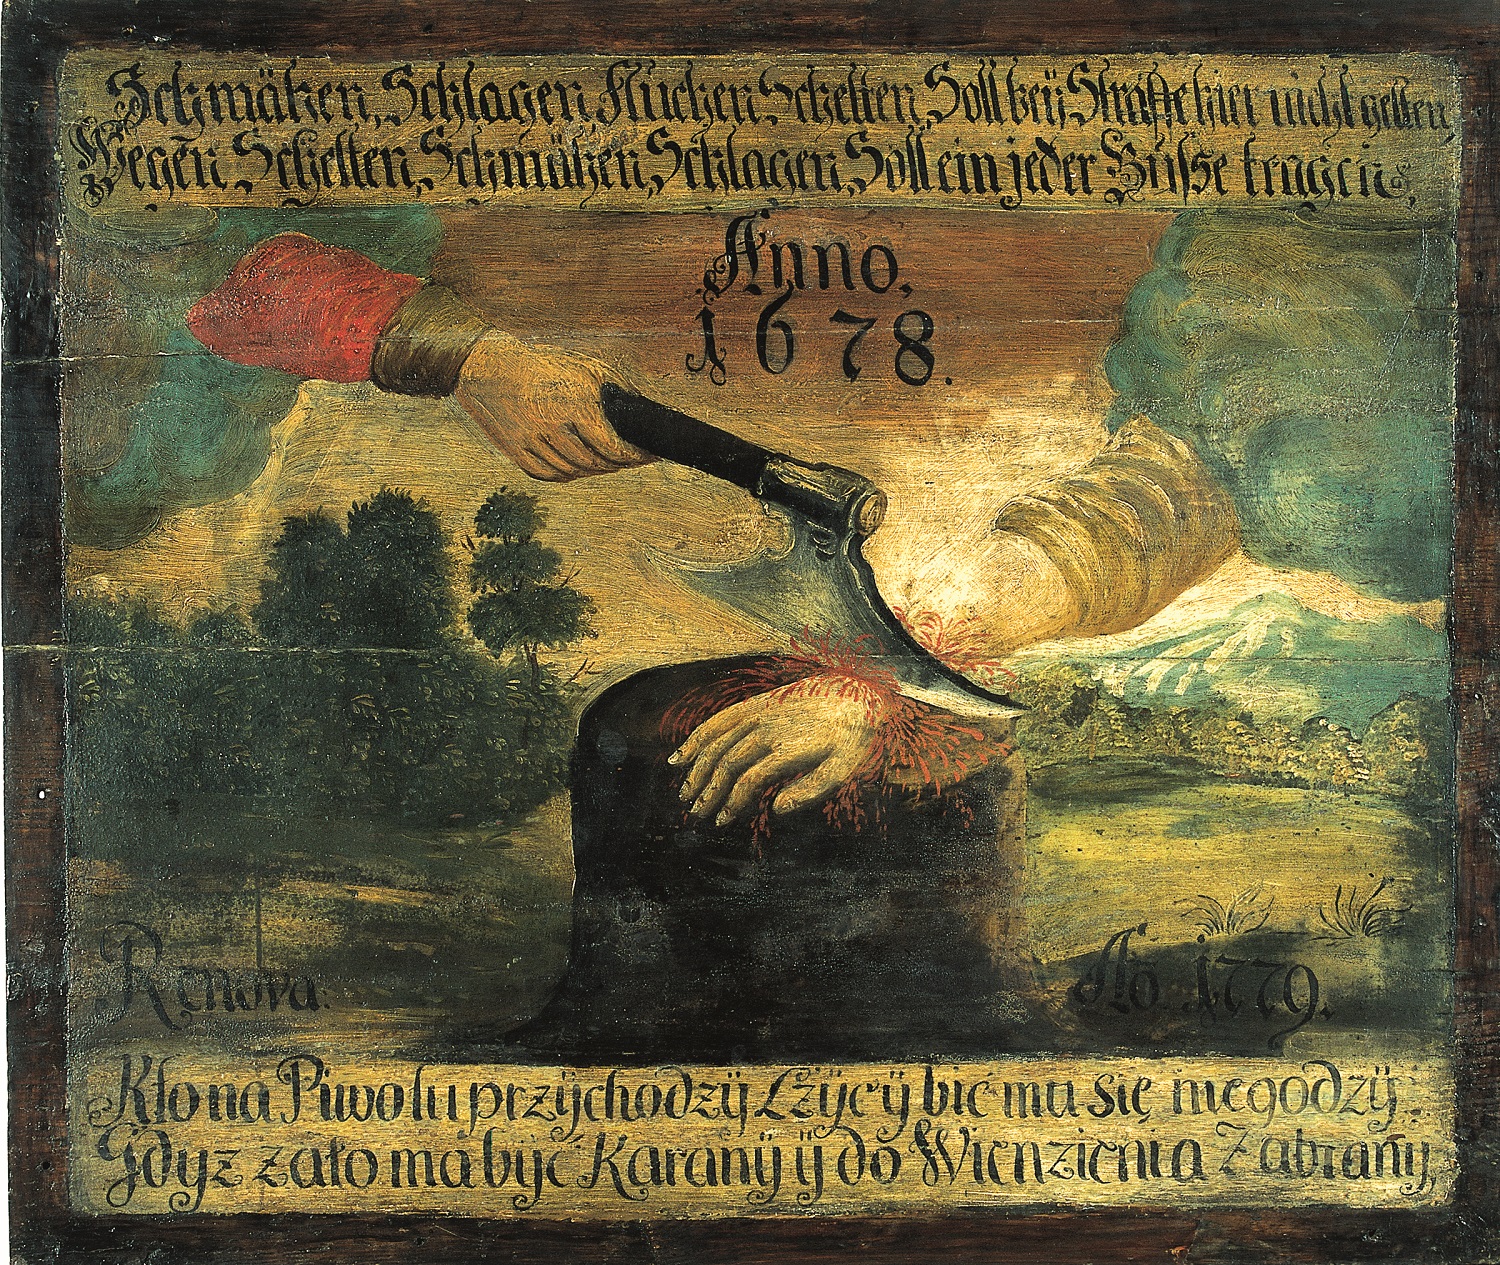 Schmähen, Schlagen, Fluchen, Schelten, Soll beÿ Straffe hier nicht gelten,
Wegen Schelten, Schmähen, Schlagen, Soll ein jeder Büsse tragen,
Anno.
1678.
Renova:
Ao. 1779.
Kto na Piwo lu przÿchodzÿ Lżÿcÿ bic mu się niegodzÿ:
Gdyz zato ma byc Karanÿ ÿ do Wienzienia Zabranÿ,